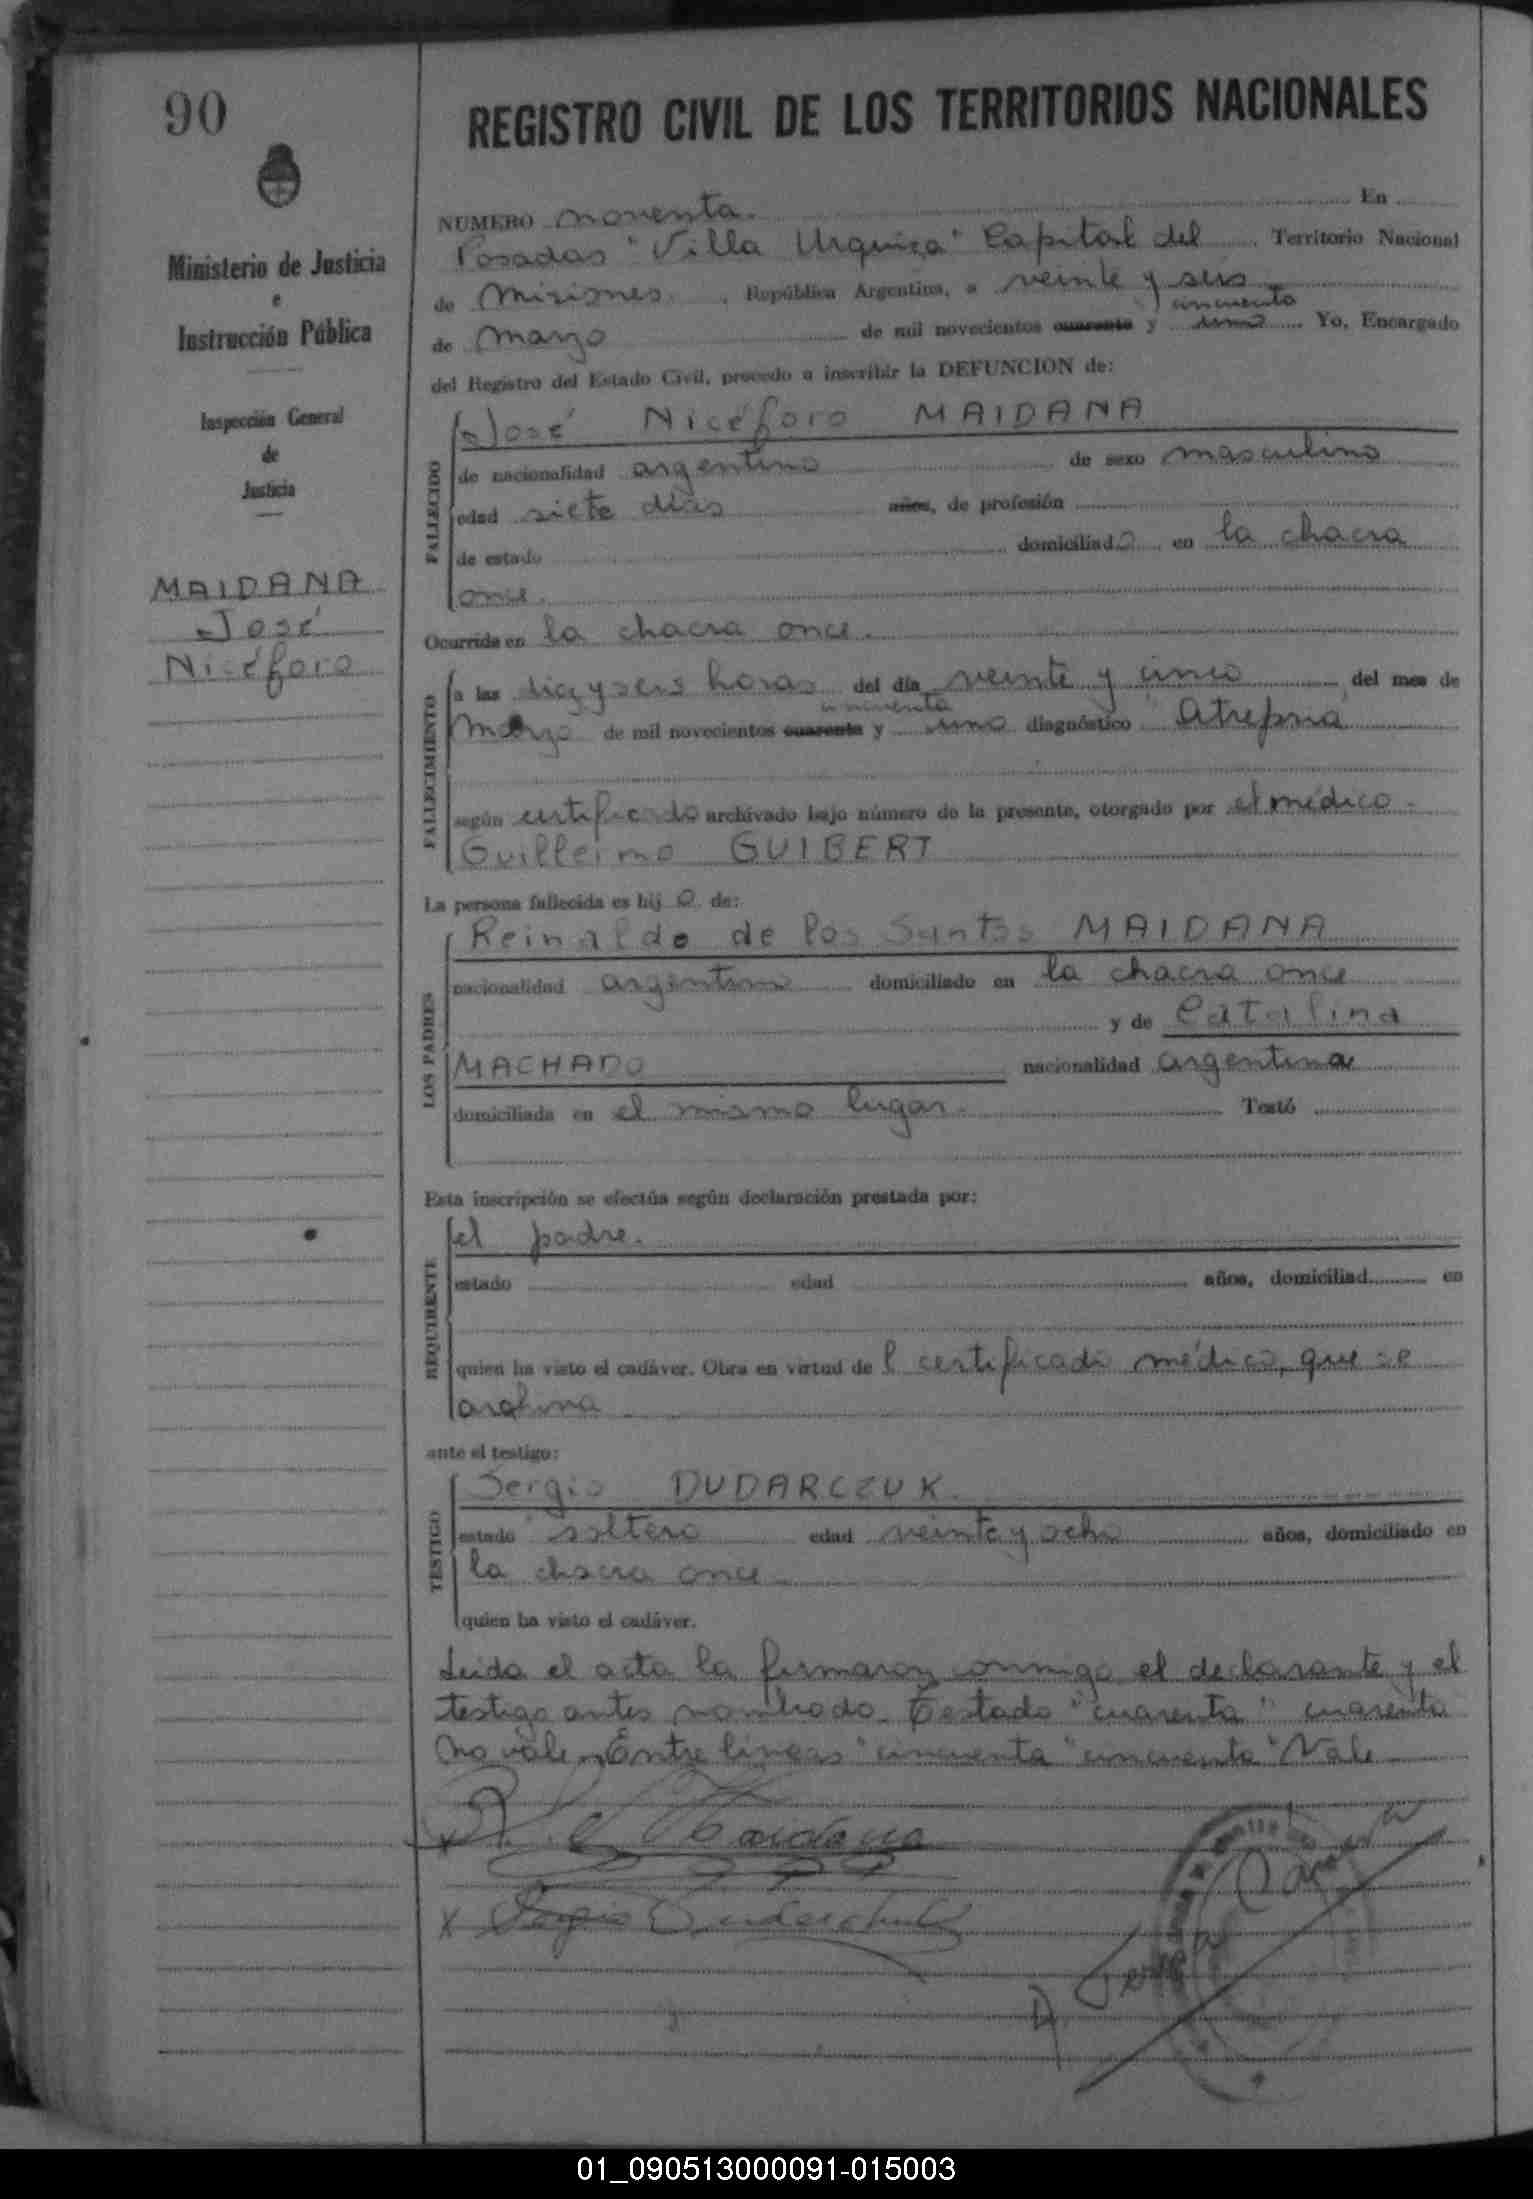 90
REGISTRO CIVIL DE LOS TERRITORIOS NACIONALES
Ministerio de Justicia
e
Instrucción Pública
Inspección General
de
Justicia
MAIDANA
José
Nicéforo
NUMERO noventa. En
Posadas "Villa Urquiza" Capital del Territorio Nacional
de Misiones, República Argentina, a veinte y seis
cincuenta
de Marzo de mil novecientos cuarenta y uno Yo, Encargado
del Registro del Estado Civil, procedo a inscribir la DEFUNCION de:
FALLECIDO
José Nicéforo MAIDANA
de nacionalidad argentino de sexo masculino
edad siete días años, de profesión
de estado domiciliado en la chacra
once.
Ocurrida en la chacra once.
FALLECIMIENTO
a las diez y seis horas del día veinte y cinco del mes de
cincuenta
Marzo de mil novecientos cuarenta y uno diagnóstico "Atrepsia"
según certificado archivado bajo número de la presente, otorgado por el médico
Guillermo GUIBERT
La persona fallecida es hijo de:
LOS PADRES
Reinaldo de los Santos MAIDANA
nacionalidad argentino domiciliado en la chacra once
y de Catalina
MACHADO nacionalidad argentina
domiciliada en el mismo lugar. Testó
Esta inscripción se efectúa según declaración prestada por:
REQUIRENTE
el padre.
estado edad años, domiciliad en
quien ha visto el cadáver. Obra en virtud del certificado médico, que se
archiva
ante el testigo:
TESTIGO
Sergio DUDARCZUK.
estado soltero edad veinte y ocho años, domiciliado en
la chacra once
quien ha visto el cadáver.
Leida el acta la firmaron conmigo el declarante y el
testigo antes nombrado. Testado "cuarenta" cuarenta
No vale. Entre lineas "cincuenta" cincuenta" Vale
x R. Maidana
x Sergio Dudarchuk
01_090513000091-015003